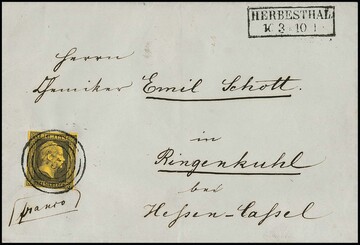 HERBESTHAL
16 3 10
Herrn
Chemiker Emil Schott.
in
Ringenkuhl
bei
Hessen-Cassel
franco